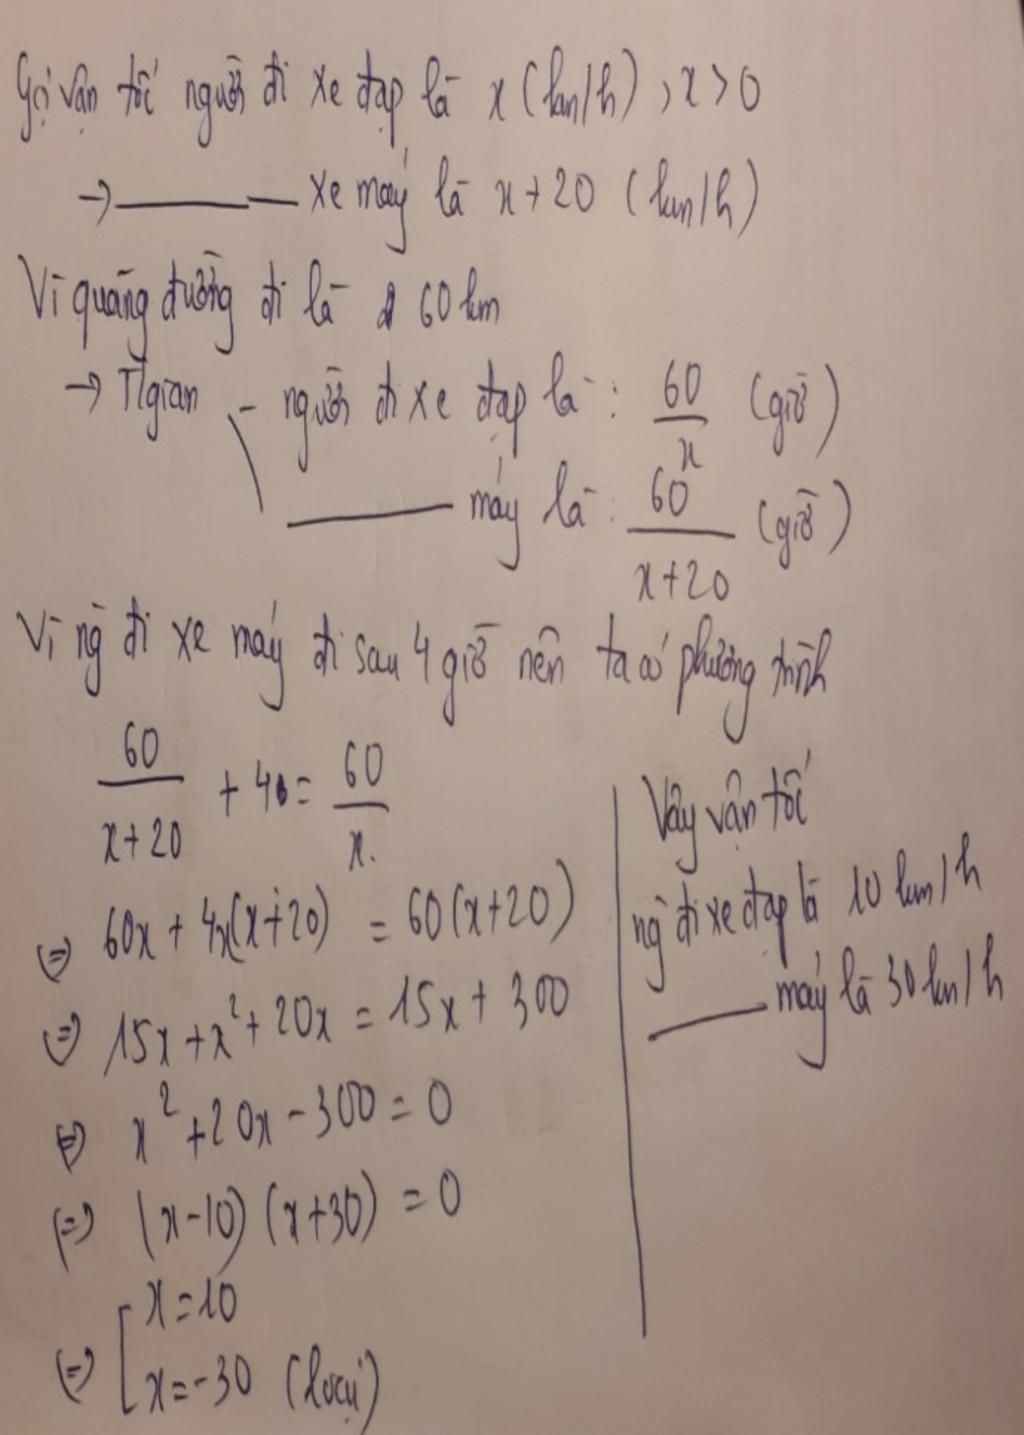 Gọi vận tốc người đi xe đạp là x (km/h), x > 0
→ ——— xe máy là x + 20 (km/h)
Vì quãng đường đi là 60 km
→ Tgian - người đi xe đạp là : 60/x (giờ)
——— máy là : 60/(x+20) (giờ)
Vì ng đi xe máy đi sau 4 giờ nên ta có phương trình
60/(x+20) + 4 = 60/x
⇔ 60x + 4x(x+20) = 60(x+20)
⇔ 15x + x² + 20x = 15x + 300
⇔ x² + 20x - 300 = 0
⇔ (x-10) (x+30) = 0
⇔ [ x = 10
x = -30 (loại)
Vậy vận tốc
ng đi xe đạp là 10 km/h
——— máy là 30 km/h